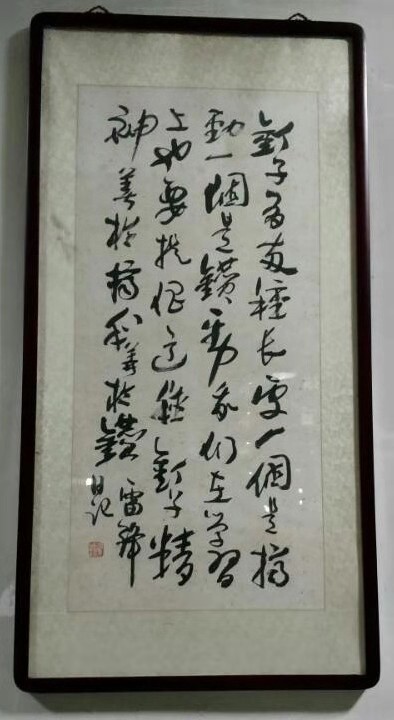 釘子有兩種長處一個是擠
勁一個是鑽勁我们在学習
上也要提倡這種釘子精
神善於擠和善於鑽 雷鋒
日记